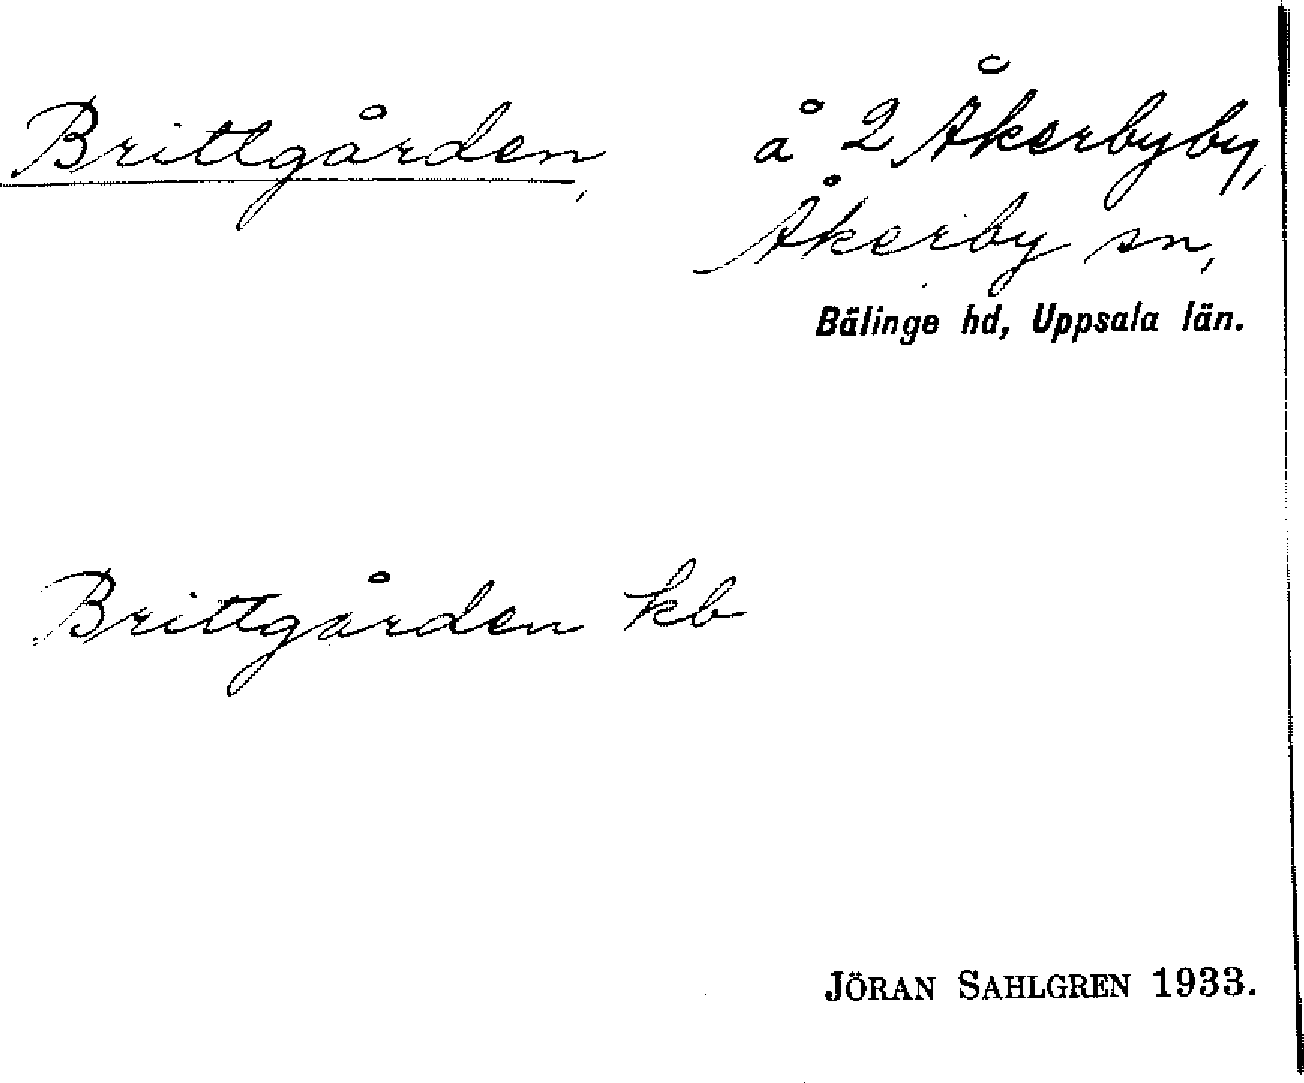 Brittgården, å 2 Åkerbyby,
Åkerby sn,
Bälinge hd, Uppsala län.
Brittgården kb
JÖRAN SAHLGREN 1933.